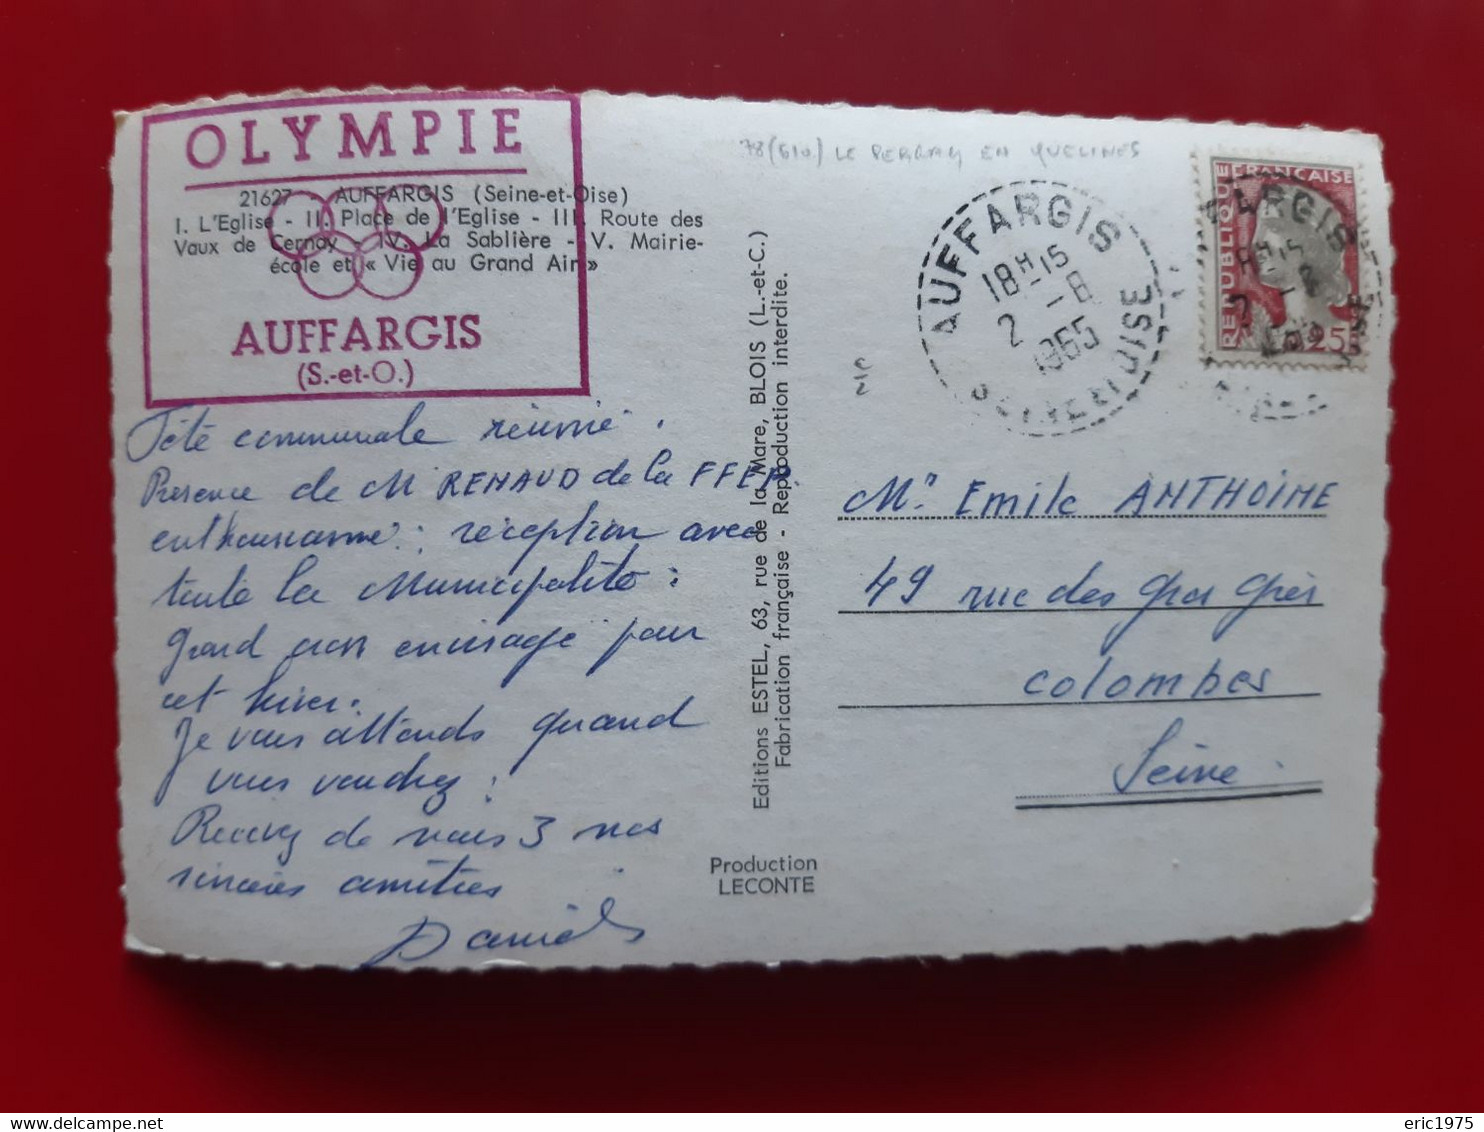 OLYMPIE
21627 AUFFARGIS (Seine-et-Oise)
I. L'Eglise - II. Place de l'Eglise - III. Route des
Vaux de Cernay - IV. La Sablière - V. Mairie-
école et « Vie au Grand Air »
AUFFARGIS
(S.-et-O.)
Fête communale réussie.
Présence de M RENAUD de la FFEP
enthousiasme : réception avec
toute la Municipalité :
grand envisagé pour
cet hiver.
Je vous attends quand
vous voudrez :
Recevez de nous 3 nos
sincères amitiés
Daniel
Editions ESTEL, 63, rue de la Mare, BLOIS (L.-et-C.)
Fabrication française - Reproduction interdite.
Production
LECONTE
78(610) LE PERRAY EN YVELINES
AUFFARGIS
18H15
2 -8
1965
SEINE ET OISE
REPUBLIQUE FRANCAISE
0,25
Mr Emile ANTHOINE
49 rue des Gros Grès
Colombes
Seine.
eric1975